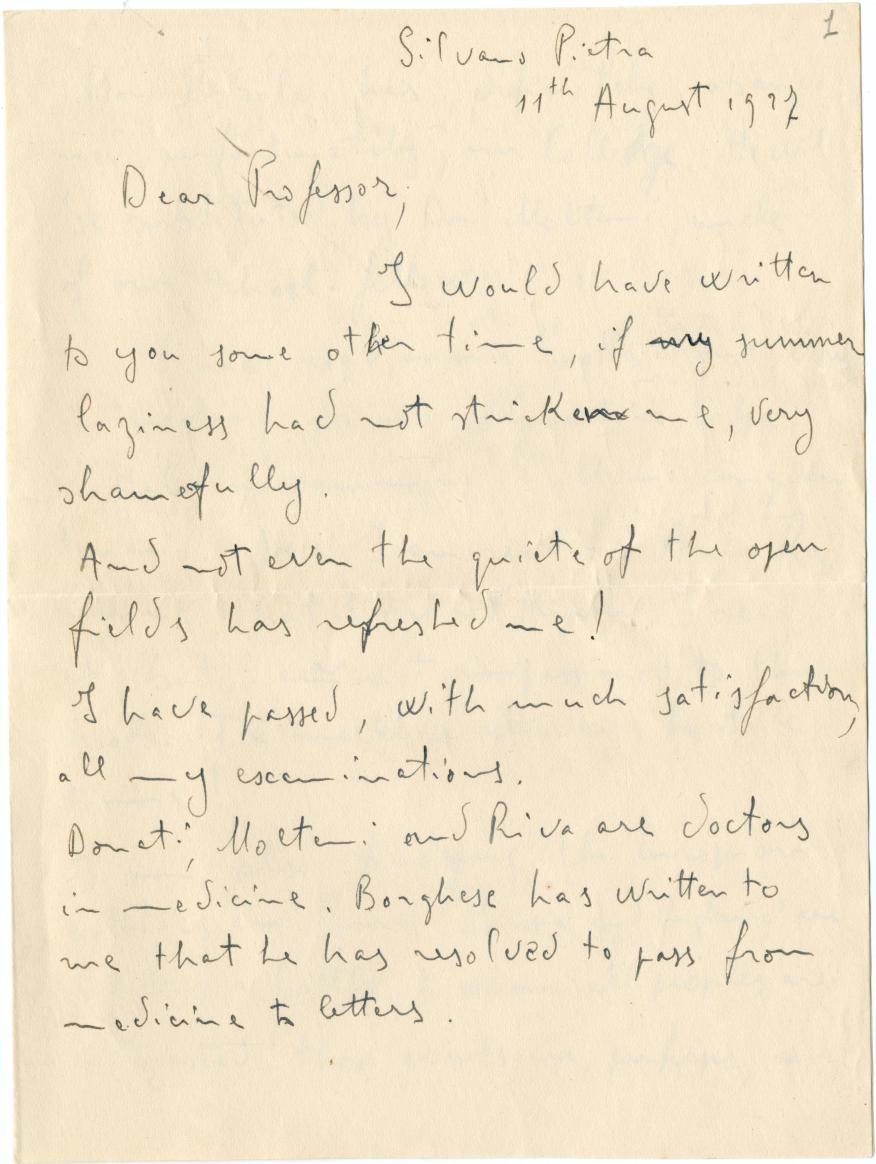 1
Silvano Pietra
11th August 1927
Dear Professor,
I would have written
to you some other time, if my summer
laziness had not stricken me, very
shamefully.
And not even the quiete of the open
fields has refreshed me!
I have passed, with much satisfaction,
all my examinations.
Donati, Molteni and Riva are doctors
in medicine. Borghese has written to
me that he has resolved to pass from
medicine to letters.